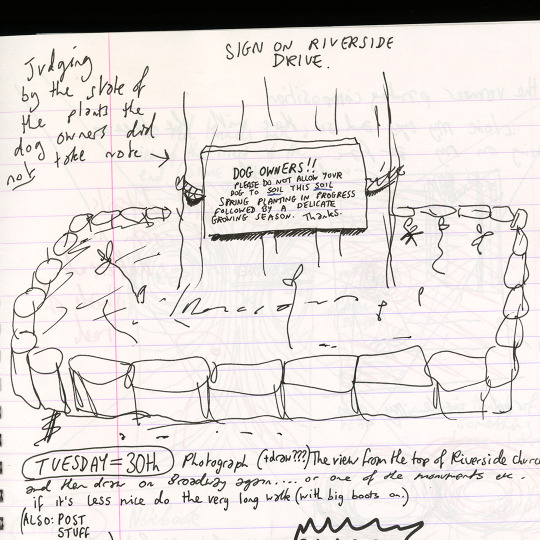 SIGN ON RIVERSIDE
DRIVE.
Judging
by the state of
the plants the
dog owners did
not take note →
DOG OWNERS!!
PLEASE DO NOT ALLOW YOUR
DOG TO SOIL THIS SOIL
SPRING PLANTING IN PROGRESS
FOLLOWED BY A DELICATE
GROWING SEASON. Thanks.
TUESDAY = 30th Photograph (+draw???) The view from the top of Riverside church
and then draw on Broadway again.... or one of the monuments etc.
if it's less nice do the very long walk (with big boots on.)
(ALSO: POST
STUFF